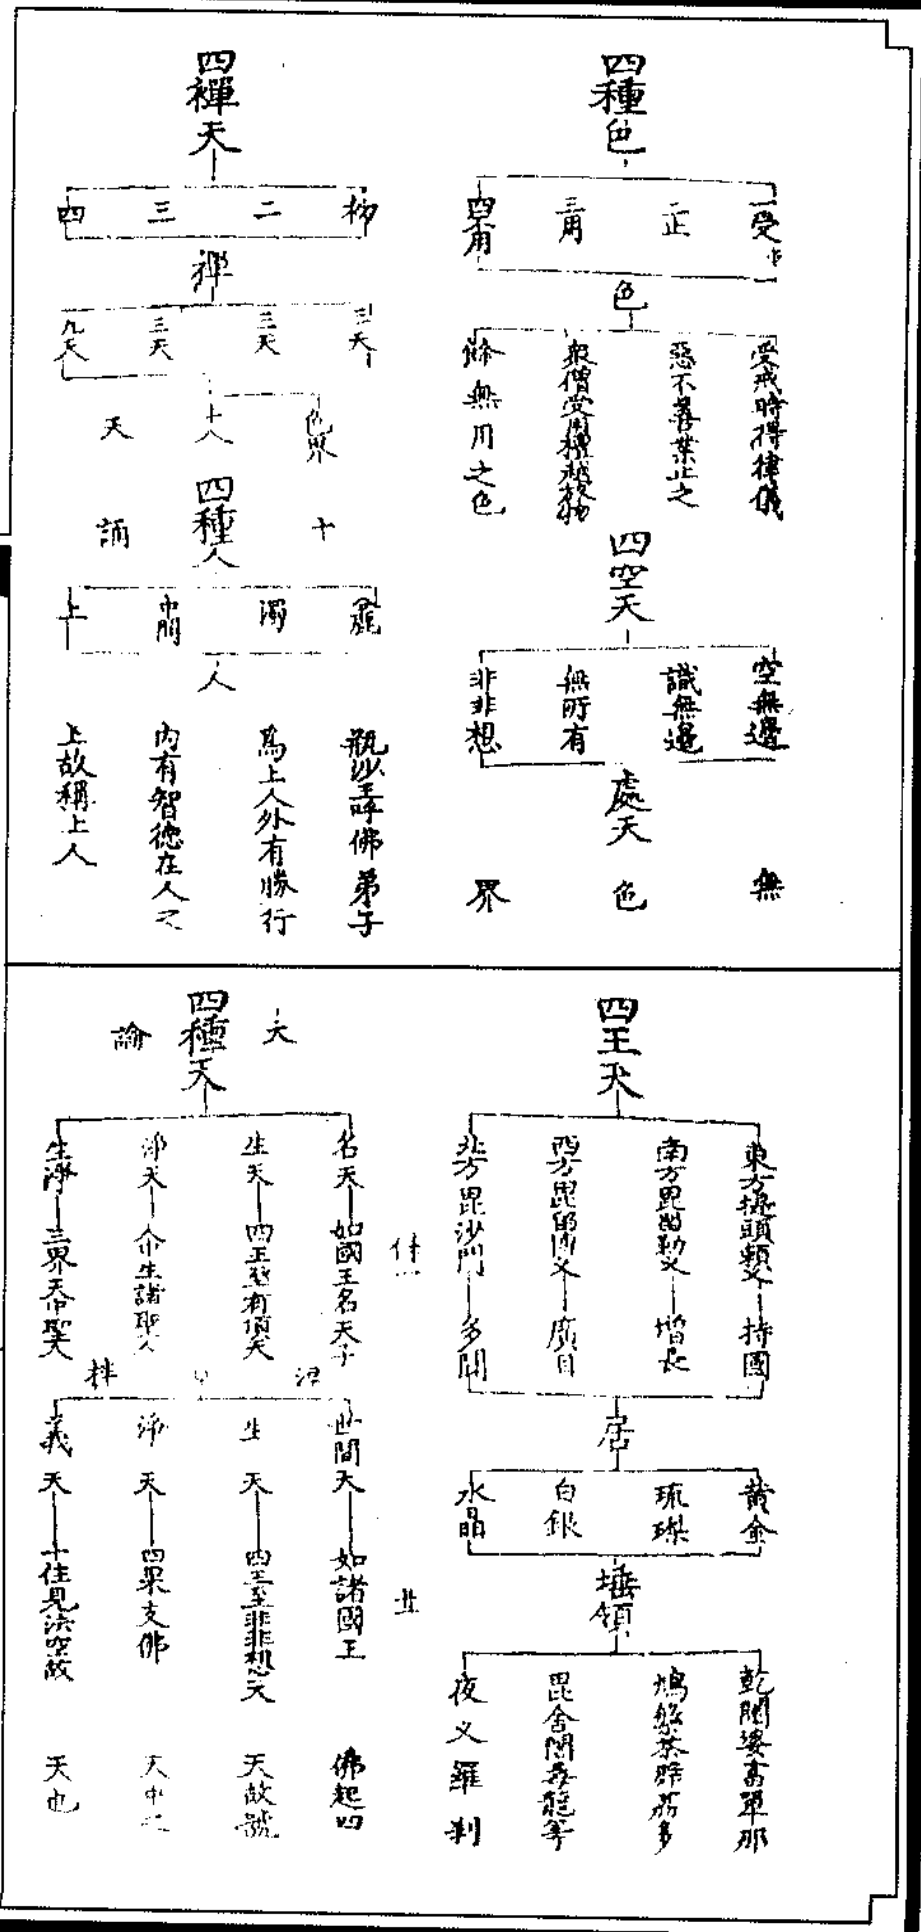 四種色
一受作
二正
三用
四不用
色
受戒時得律儀
惡不善業止之
眾僧受用檀越施物
餘無用之色
四空天
空無邊
識無邊
無所有
非非想
處天
無
色
界
四禪天
初
二
三
四
禪
三天
三天
三天
九天
色界
十八
天
四種人
十
誦
麁
濁
中間
上
人
瓶沙王呼佛弟子
為上人外有勝行
內有智德在人之
上故稱上人
四王天
東方提頭賴吒—持國
南方毘留勒叉—增長
西方毘留博叉—廣目
北方毘沙門—多聞
居
黃金
琉璃
白銀
水晶
埵領
乾闥婆富單那
鳩槃茶薜荔多
毘舍闍毒龍等
夜叉羅剎
四種天
大
論
名天—如國王名天子
生天—四王至有頂天
淨天—人中生諸聖人
生淨—三界天中聖人
世間天—如諸國王
生天—四王至非非想天
淨天—四果支佛
義天—十住見法空故
佛起四
天故號
天中之
天也